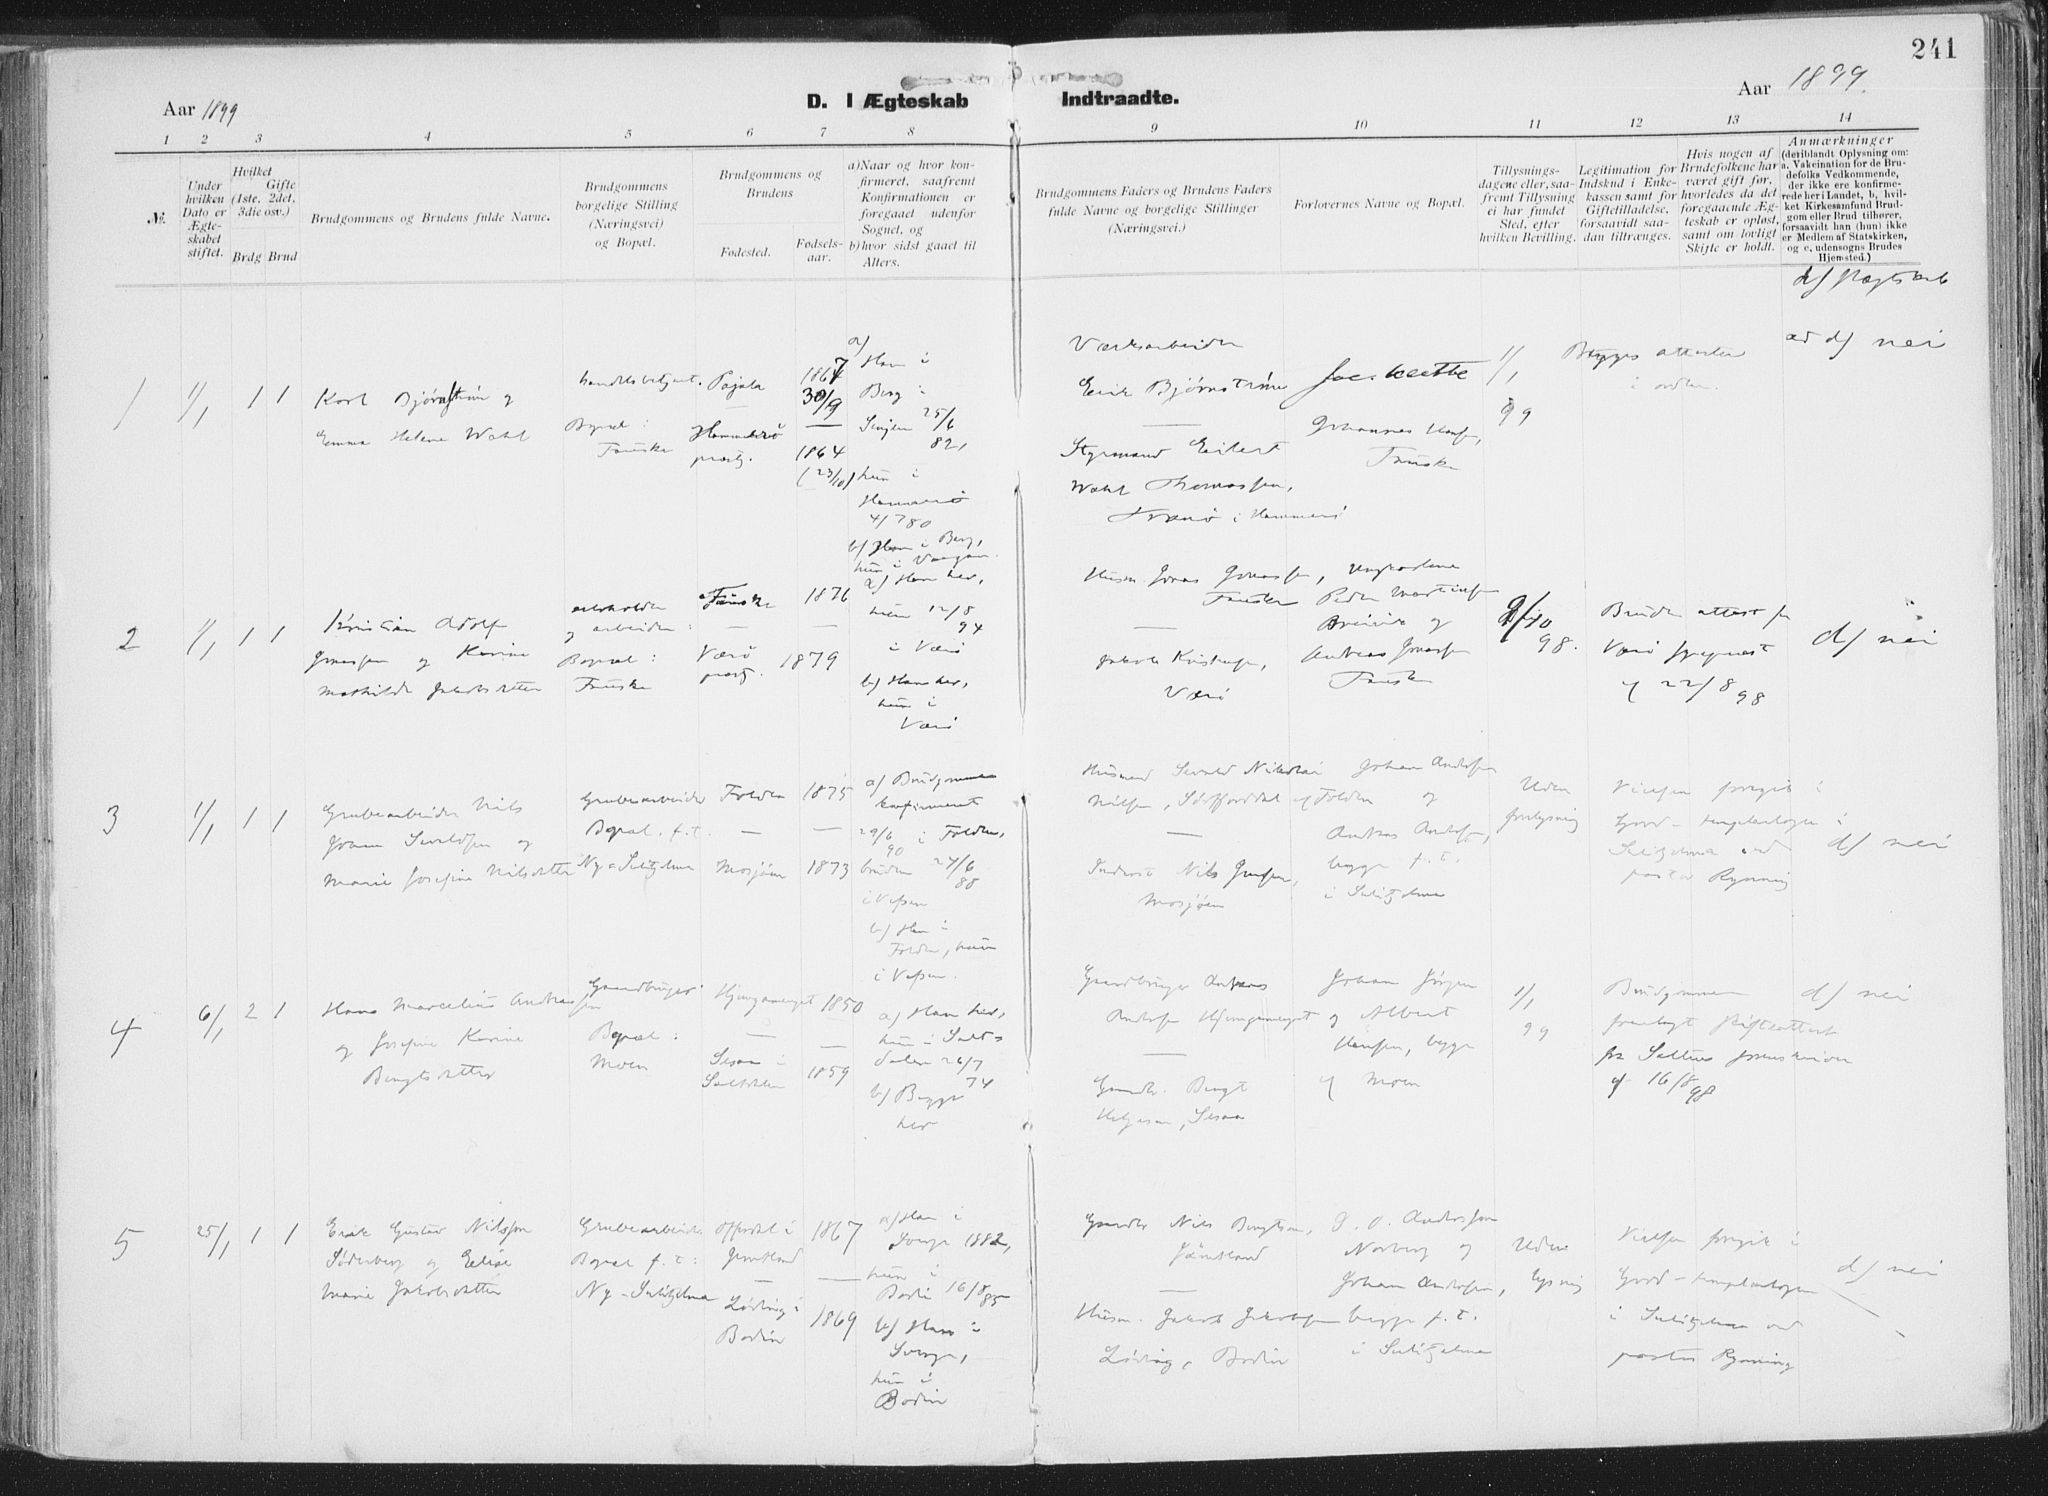 241
Aar 1899
D. I Ægteskab Indtraadte.
Aar 1899.
1 2 3 4 5 6 7 8 9 10 11 12 13 14
№.
Under
hvilken
Dato er
Ægte-
skabet
stiftet.
Hvilket
Gifte
(1ste, 2det,
3die osv.)
Brdg Brud
Brudgommens og Brudens fulde Navne.
Brudgommens
borgelige Stilling
(Næringsvei)
og Bopæl.
Brudgommens og
Brudens
Fødested.
Fødsels-
aar.
a) Naar og hvor kon-
firmeret, saafremt
Konfirmationen er
foregaaet udenfor
Sognet, og
b) hvor sidst gaaet til
Alters.
Brudgommens Faders og Brudens Faders
fulde Navne og borgelige Stillinger
(Næringsvei.)
Forlovernes Navne og Bopæl.
Tillysnings-
dagene eller, saa-
fremt Tillysning
ei har fundet
Sted, efter
hvilken Bevilling.
Legitimation for
Indskud i Enke-
kassen samt for
Giftetilladelse,
forsaavidt saa-
dan tiltrænges.
Hvis nogen af
Brudefolkene har
været gift før,
hvorledes da det
foregaaende Æg-
teskab er opløst,
samt om lovligt
Skifte er holdt.
Anmærkninger
(deriblandt Oplysning om:
a. Vakcination for de Bru-
defolks Vedkommende,
der ikke ere konfirme-
rede her i Landet, b, hvil-
ket Kirkesamfund Brud-
gom eller Brud tilhører,
forsaavidt han (hun) ikke
er Medlem af Statskirken,
og c, udensogns Brudes
Hjemsted.)
d) slægtskab
1
1/1
1 1
Karl Bjørnstrøm og
Emma Helene Wahl
handelsbetjent.
Bopæl:
Fauske
Pajala
—
Hammerø
præstg.
1864
30/9
—
1864
(23/10)
a)
Han i
Berg i
Senjen 25/6
82,
hun i
Hammerø
4/7 80
b) Han i Berg,
hun i Vaagan.
Værksarbeider
Erik Bjørnstrøm
—
Styrmand Eilert
Wahl Thomassen,
Tranø i Hammerø
Johannes Hansen,
Fauske
1/1
99
Begges attester
i orden.
d) nei
2
1/1
1 1
Kristian Adolf
Jonassen og Karine
Mathilde Jakobsdatter
og arbeider:
Bopæl:
Fauske
Fauske
—
Værø
præstg.
1876
—
1879
a) Han her,
hun 12/8
94
i Værø
b) Han her,
hun i
Værø
Husm. Jonas Jonassen,
Fauske
—
Jakob Kristensen,
Værø
Ungkarlene
Peder Martinsen
og
Andreas Jonassen
Fauske
98.
Brudens attest fra
Værø sogneprest
af 22/8 98
d) nei
3
1/1
1 1
Grubearbeider Nils
Johan Sivaldsen og
Marie Josefine Nilsdatter
Grubearbeider
Bopæl f.t.
Ny-Sulitjelma
Folden
—
Mosjøen
1875
—
1873
a) Brudgommen
konfirmeret
29/6 90 i Folden,
bruden 27/6
88
i Vefsen
b) Han i
Folden, hun
i Vefsen.
Husmand Sivald Nikolai
Nilsen, Sørfjorddal af Folden
—
Inderst Nils Jensen,
Mosjøen
Johan Andersen
og
Andreas Andersen,
begge f.t.
i Sulitjelma
Uden
forlysning
Vielsen foregik i
Good-templarlogen i
Sulitjelma ved
pastor Rynning
d) nei
4
6/1
2 1
Hans Marcelius Andreassen
og Josefine Karine
Bengtsdatter
Gaardbruger
Bopæl:
Moen
Hjemgammen
—
Sesaa i
Saltdalen
1850
—
1859
a) Han her,
hun i Salt-
dalen 26/7
74
b) Begge
her
Gaardbruger Andreas
Andersen
—
Gaardbr. Bengt
Helgesen, Sesaa
Johan Jørgen
og Albert
Hansen, begge
af Moen
1/1
99
Brudgommen
fremlagt skifteattest
fra Saltens sorenskriver
af 16/8 98
d) nei
5
25/1
1 1
Erik Gustav Nilsson
Söderberg og Elise
Marie Jakobsdatter
Grubearbeider
Bopæl f.t:
Ny-Sulitjelma
Offerdal i
Jemtland
—
Løding i
Bodin
1867
—
1869
a) Han i
Sverge 1882,
hun i
Bodin 16/8 85
b) Han i
Sverge,
hun i
Bodin
Gaardbr. Nils Bengtson,
Jämtland
—
Husm. Jakob Jakobsen
Løding, Bodin
Andersson
Norberg og
Johan Andersen,
begge f.t.
i Sulitjelma
Uden
lysning
Vielsen foregik i
Good-templarlogen
i Sulitjelma ved
pastor Rynning
d) nei